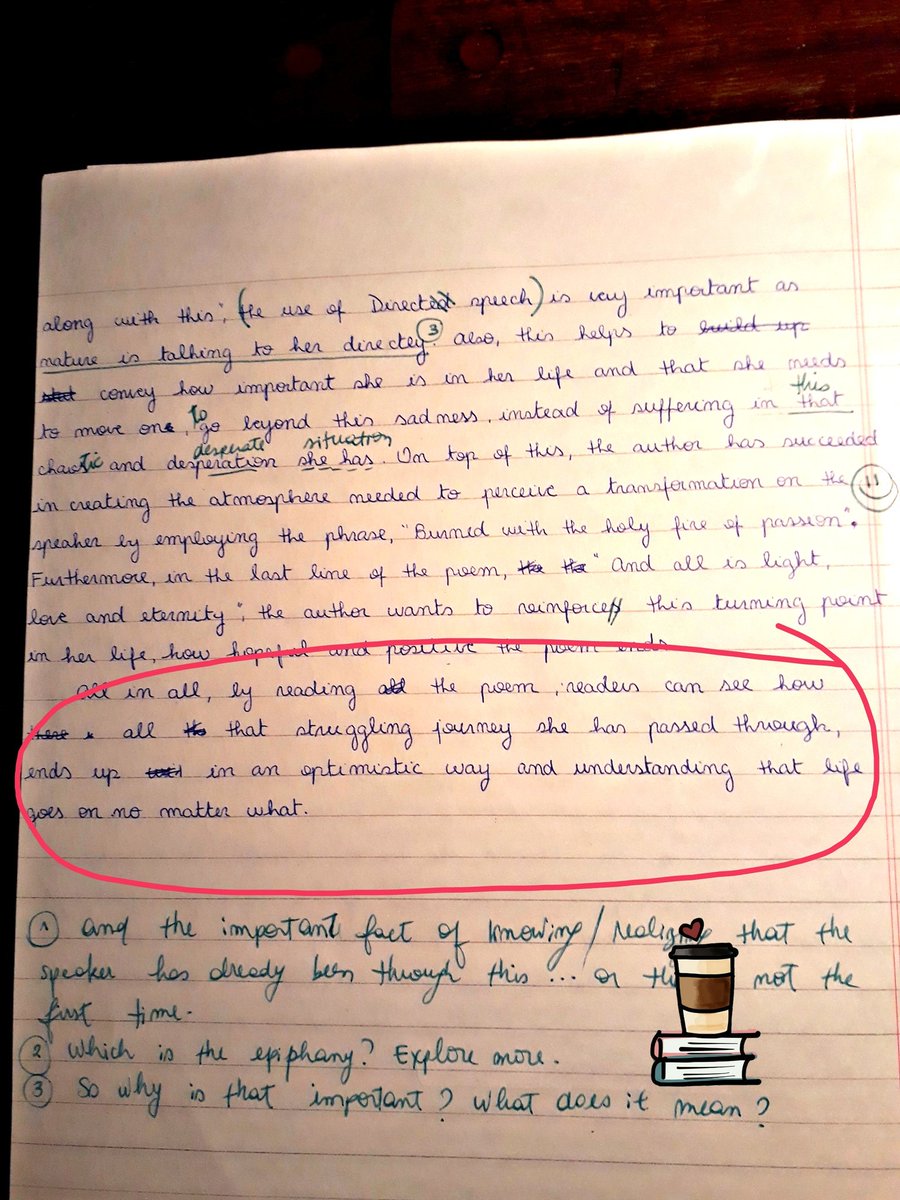 along with this", (the use of Direct speech) is very important as
nature is talking to her directly. ③ also, this helps to build up
convey how important she is in her life and that she needs
this
to move on, To go beyond this sadness, instead of suffering in that
desperate situation
chaotic and desperation she has. On top of this, the author has succeeded
in creating the atmosphere needed to perceive a transformation on the
speaker by employing the phrase, "Burned with the holy fire of passion".
Furthermore, in the last line of the poem, the the "And all is light,
love and eternity", the author wants to reinforce this turning point
in her life, how hopeful and positive the poem ends
All in all, by reading all the poem, readers can see how
there all that struggling journey she has passed through,
ends up in an optimistic way and understanding that life
goes on no matter what.
① and the important fact of knowing/realizing that the
speaker has already been through this ... or not the
first time.
② Which is the epiphany? Explore more.
③ So why is that important? What does it mean?